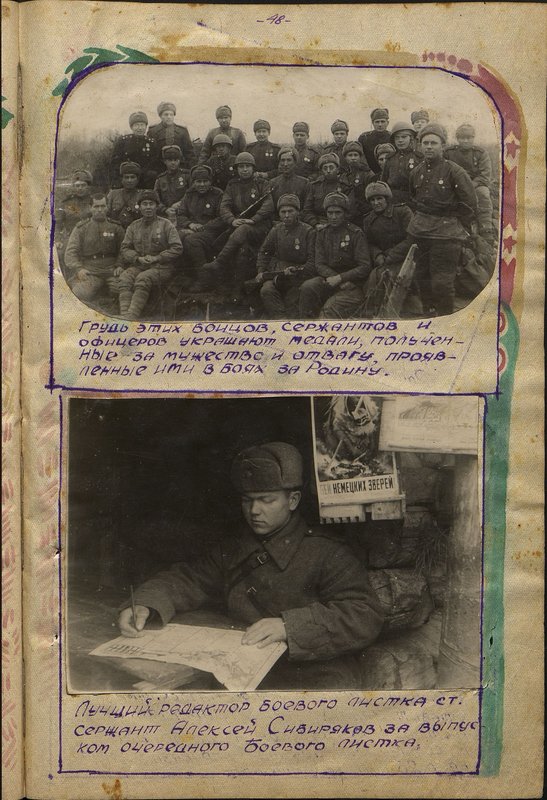 -48-
Грудь этих бойцов, сержантов и
офицеров украшают медали, получен-
ные за мужество и отвагу, прояв-
ленные ими в боях за Родину.
НЕМЕЦКИХ ЗВЕРЕЙ
Лучший редактор боевого листка ст.
сержант Алексей Сибиряков за выпус-
ком очередного Боевого листка.